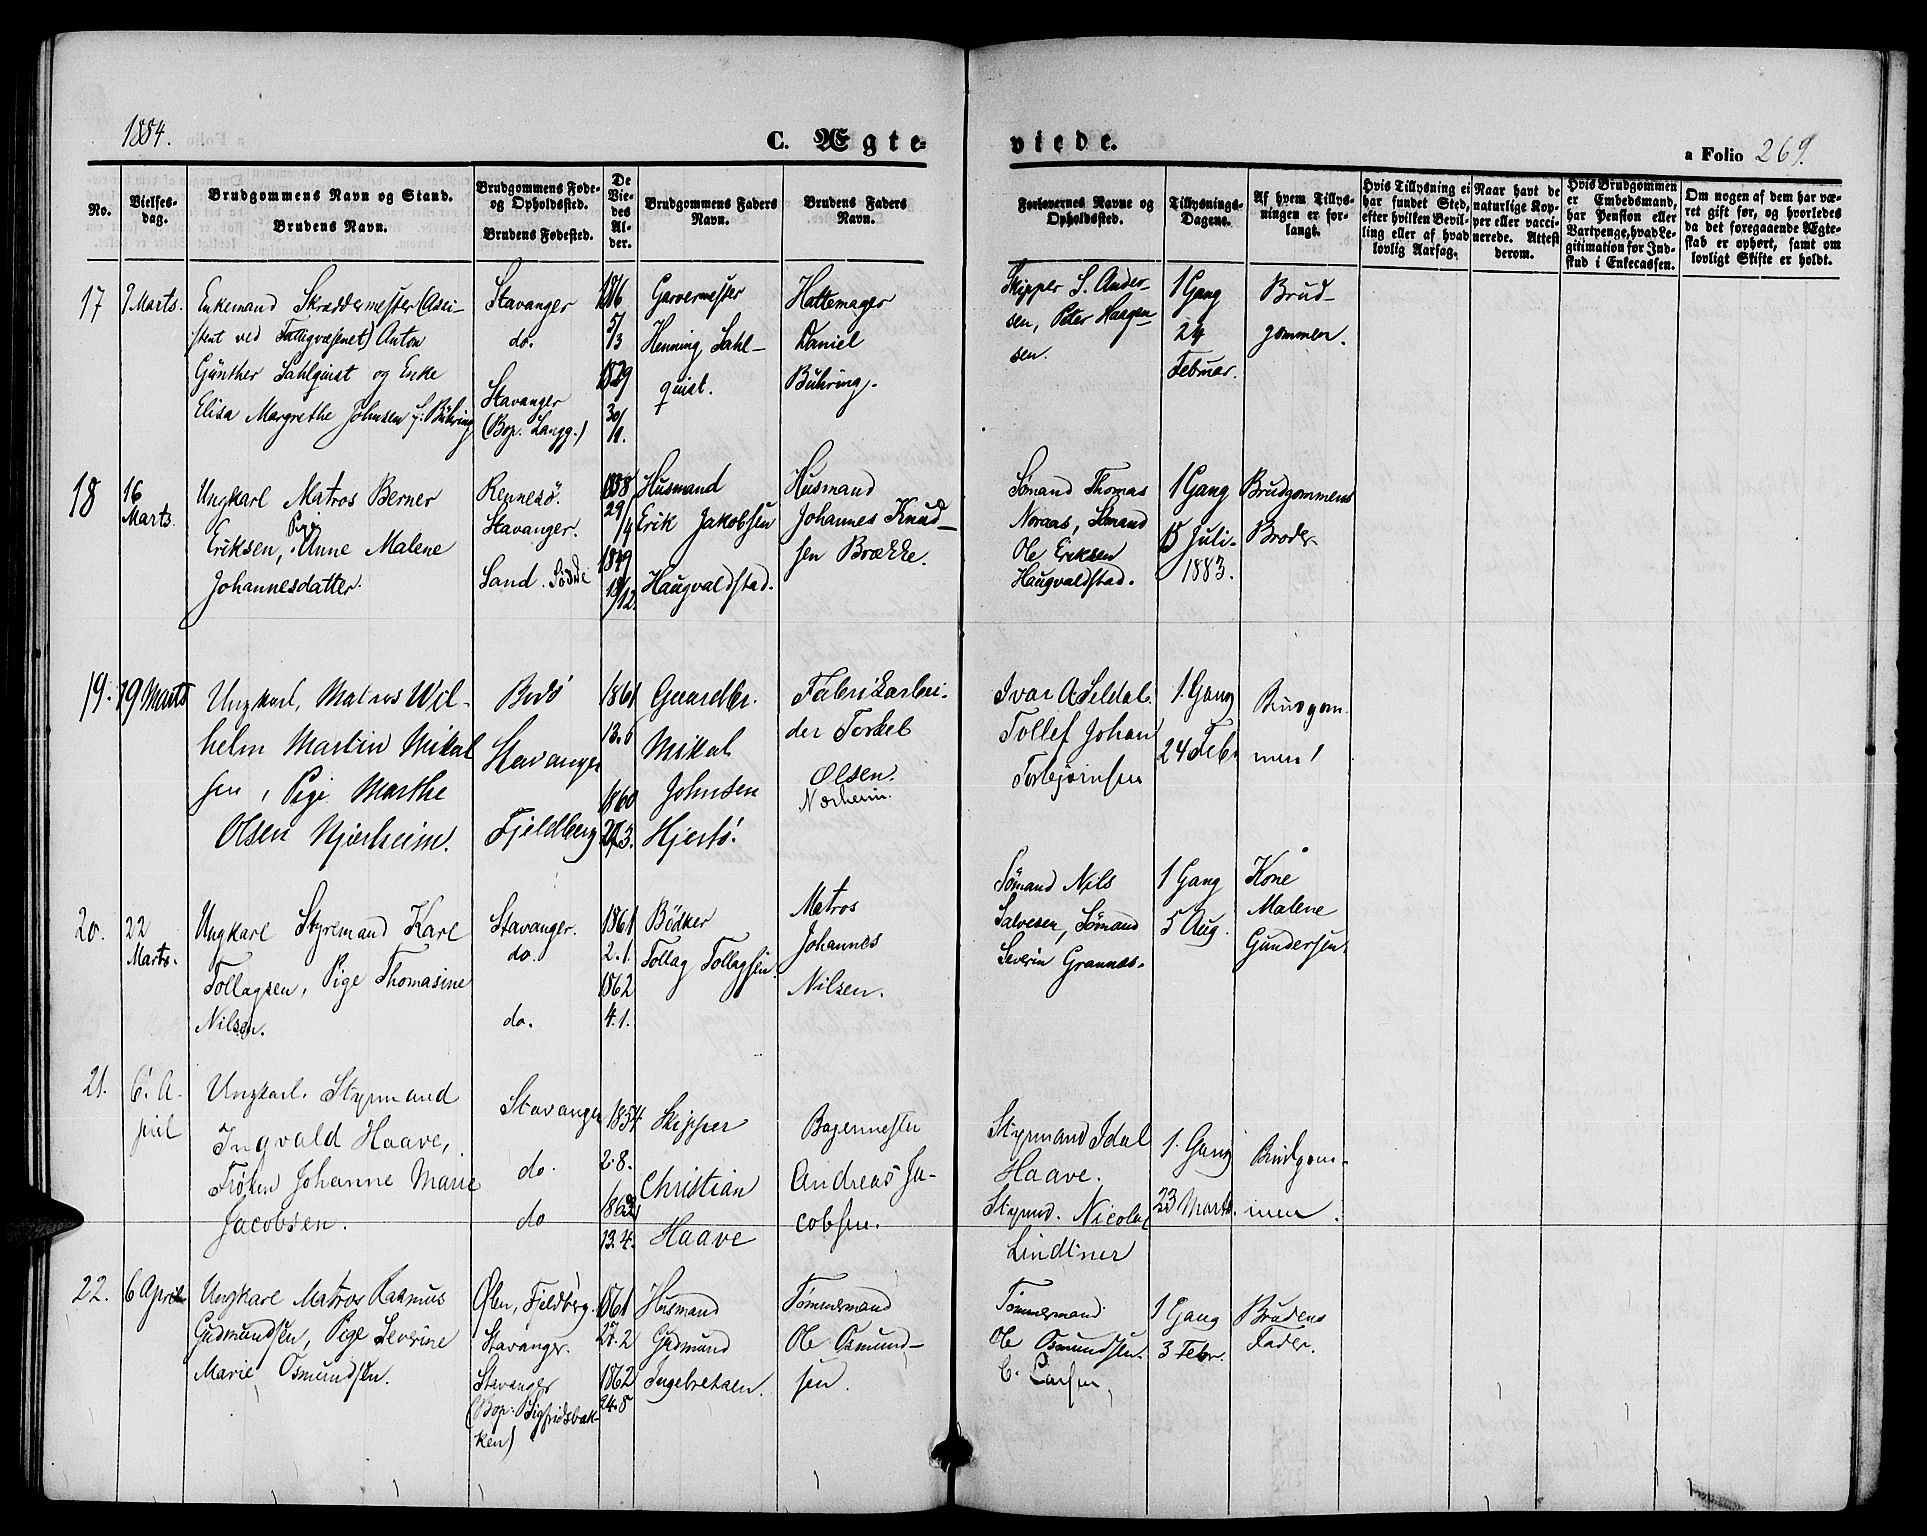 1884.
C. Ægte-
viede.
a Folio 269.
No.
Vielses-
dag.
Brudgommens Navn og Stand.
Brudens Navn.
Brudgommens Føde-
og Opholdssted.
Brudens Fødested.
De
Vie-
des
Al-
der.
Brudgommens Faders
Navn.
Brudens Faders
Navn.
Forlovernes Navne og
Opholdssted.
Tillysnings-
Dagene.
Af hvem Tillys-
ningen er for-
langt.
Hvis Tillysning ei
har fundet Sted,
efter hvilken Bevil-
ling eller af hvad
lovlig Aarsag.
Naar havt de
naturlige Kop-
per eller vacci-
nerede. Attest
derom.
Hvis Brudgommen
er Embedsmand,
har Pension eller
Vartpenge, hvad Le-
gitimation for Ind-
skud i Enkecassen.
Om nogen af dem har væ-
ret gift før, og hvorledes
da det foregaaende Ægte-
skab er ophørt, samt om
lovligt Skifte er holdt.
17
9 Marts.
Enkemand Skræddermester (Assi-
stent ved Fattigvæsenet) Anton
Günther Sahlquist og Enke
Elisa Margrethe Johnsen f. Bühring
Stavanger
do.
Stavanger
(Bop. Langg.)
5/3
1829
30/1.
Garvermester
Henning Sahl-
quist.
Hattemager
Daniel
Bühring.
Skipper S. Ander-
sen, Peter Haagen-
sen.
1 Gang
24
Februar.
Brud-
gommen.
18
16
Marts.
Ungkarl Matros Berner
Eriksen, Pige Anne Malene
Johannesdatter.
Rennesö.
Stavanger.
Sand.
1858
29/4
1849
18/12.
Husmand
Erik Jakobsen
Haugvaldstad.
Husmand
Johannes Knud-
sen Brække.
Sømand Thomas
Noraas, Sømand
Ole Eriksen
Haugvaldstad.
1 Gang
15 Juli.
1883.
Brudgommens
Broder
19.
19 Marts
Ungkarl, Matros Wil-
helm Martin Mikal
sen, Pige Marthe
Olsen Njærheim.
Bodö
Stavanger
Fjeldberg
1861
13.6
1860
27.3.
Gaardbr.
Mikal
Johnsen
Hjertö.
Fabrikarbei-
der Torkel
Olsen.
Nærheim.
Ivar A. Seldal.
Tollef Johan
Torbjörnsen
1. Gang
24 Febr
Brudgom
men
20.
22
Marts.
Ungkarl Styrmand Karl
Tollagsen, Pige Thomasine
Nilsen.
Stavanger.
do.
do.
1861
2.1.
1862
4.1.
Bödker
Tollag Tollagsen.
Matros
Johannes
Nilsen.
Sømand Nils
Salvesen, Sømand
Severin Grannes.
1 Gang
5 Aug.
Kone
Malene
Gundersen.
21.
6. A-
pril
Ungkarl. Styrmand
Ingvald Haave,
Frøken Johanne Marie
Jacobsen.
Stavanger
do.
do
1854
2.8.
13.4.
Skipper
Christian
Haave
Bagermester
Andreas Ja-
cobsen.
Styrmand Idal
Haave.
Styrmd. Nicolai
Lindtner
1. Gang
23 Marts.
Brudgom-
men.
22.
6 April
Ungkarl Matros Rasmus
Gudmundsen, Pige Severine
Marie Osmundsen.
Ølen, Fjeldberg.
Stavanger.
Stavanger
(Bop: Sigfridsbak-
ken)
1861
27.2
1862
24.8
Husmand
Gudmund
Ingebretsen.
Tømmermand
Ole Osmund-
sen.
Tømmermand
Ole Osmundsen.
C. Larsen,
1 Gang
3 Febr.
Brudens
Fader.